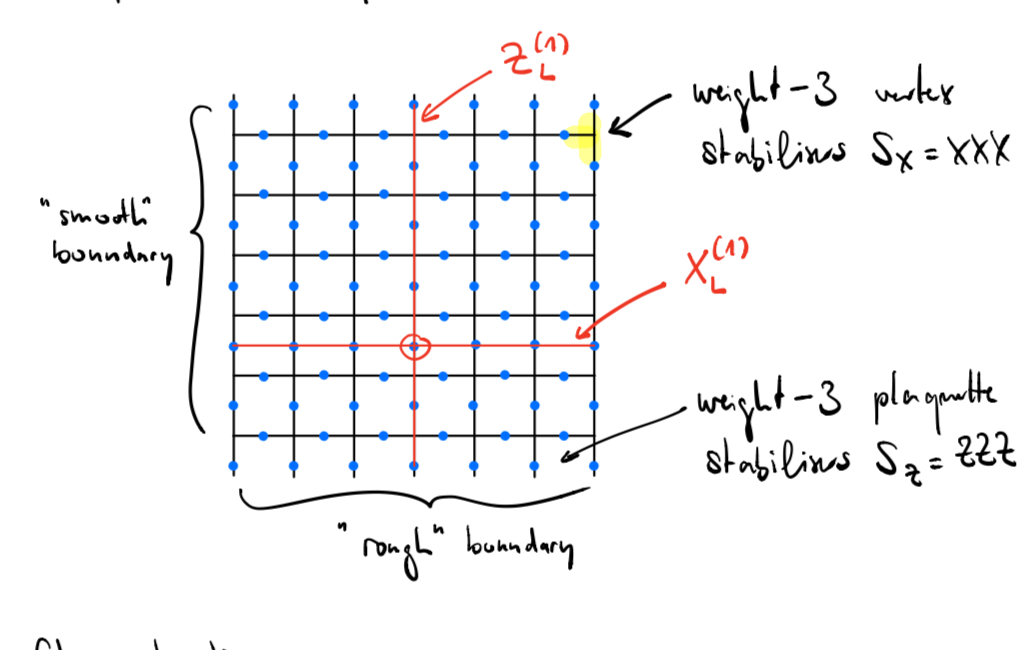 Z_L^(1)
weight-3 vertex
stabilisers S_X = XXX
"smooth"
boundary
X_L^(1)
weight-3 plaquette
stabilisers S_Z = ZZZ
"rough" boundary